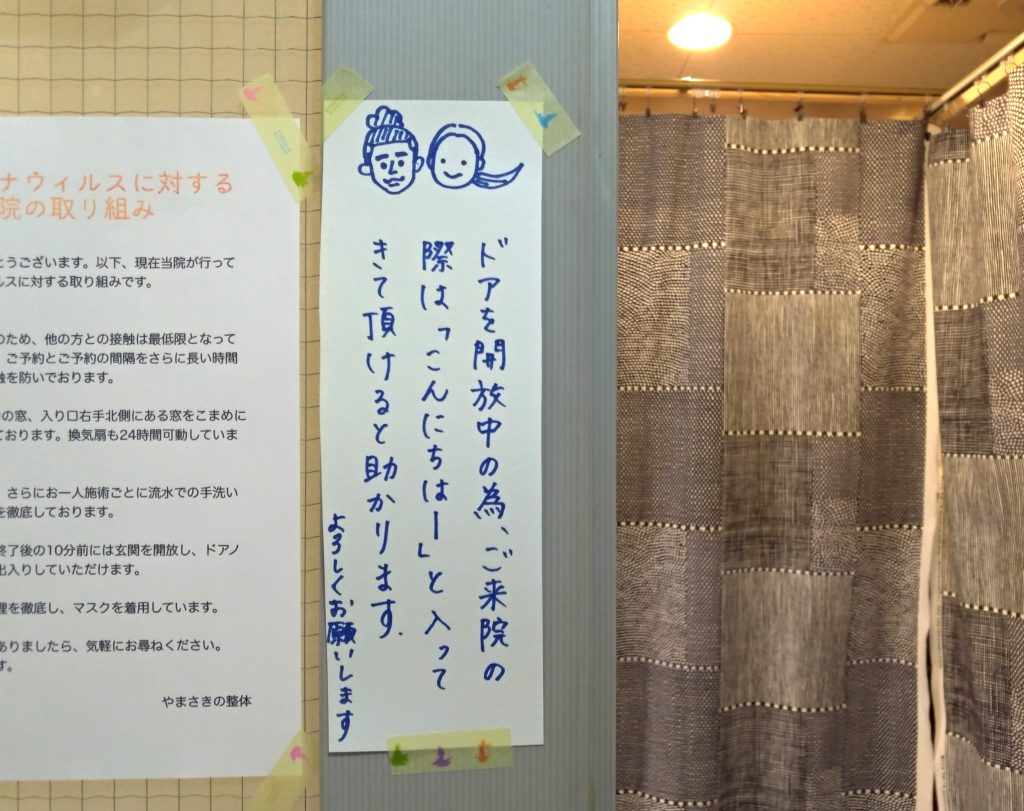 ナウィルスに対する
院の取り組み
とうございます。以下、現在当院が行って
ルスに対する取り組みです。
のため、他の方との接触は最低限となって
ご予約とご予約の間隔をさらに長い時間
触を防いでおります。
の窓、入り口右手北側にある窓をこまめに
ております。換気扇も24時間可動していま
さらにお一人施術ごとに流水での手洗い
を徹底しております。
終了後の10分前には玄関を開放し、ドアノ
出入りしていただけます。
理を徹底し、マスクを着用しています。
ありましたら、気軽にお尋ねください。
す。
やまさきの整体
ドアを開放中の為、ご来院の
際は「こんにちはー」と入って
きて頂けると助かります.
よろしくお願いします